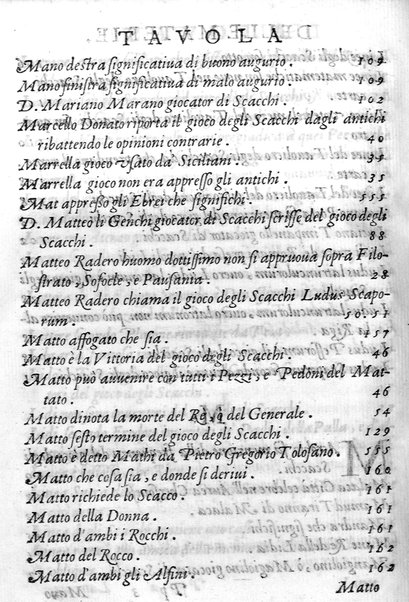 TAVOLA
Mano destra significatiua di buono augurio. 109
Mano sinistra significatiua di malo augurio. 109
D. Mariano Marano giocator di Scacchi. 102
Marcello Donato riporta il gioco degli Scacchi dagli antichi
ribattendo le opinioni contrarie. 40
Marrella gioco vsato da' Siciliani. 35
Marrella gioco non era appresso gli antichi. 35
Mat appresso gli Ebrei che significhi. 155
D. Matteo li Genchi giocator di Scacchi scrisse del gioco degli
Scacchi. 88
Matteo Radero huomo dottissimo non si appruoua sopra Filo-
strato, Sofocle, e Pausania. 28
Matteo Radero chiama il gioco degli Scacchi Ludus Scapo-
rum. 50.51
Matto affogato che sia. 157
Matto è la Vittoria del gioco degli Scacchi. 46
Matto può auuenire con tutti i Pezzi, e Pedoni del Mat-
tato. 46
Matto dinota la morte del Re, ò del Generale. 54
Matto sesto termine del gioco degli Scacchi. 129
Matto è detto Mathi da Pietro Gregorio Tolosano. 155
Matto che cosa sia, e donde si deriui. 160
Matto richiede lo Scacco. 161
Matto della Donna. 161
Matto d'ambi i Rocchi. 161
Matto del Rocco. 162
Matto d'ambi gli Alfini. 162
Matto